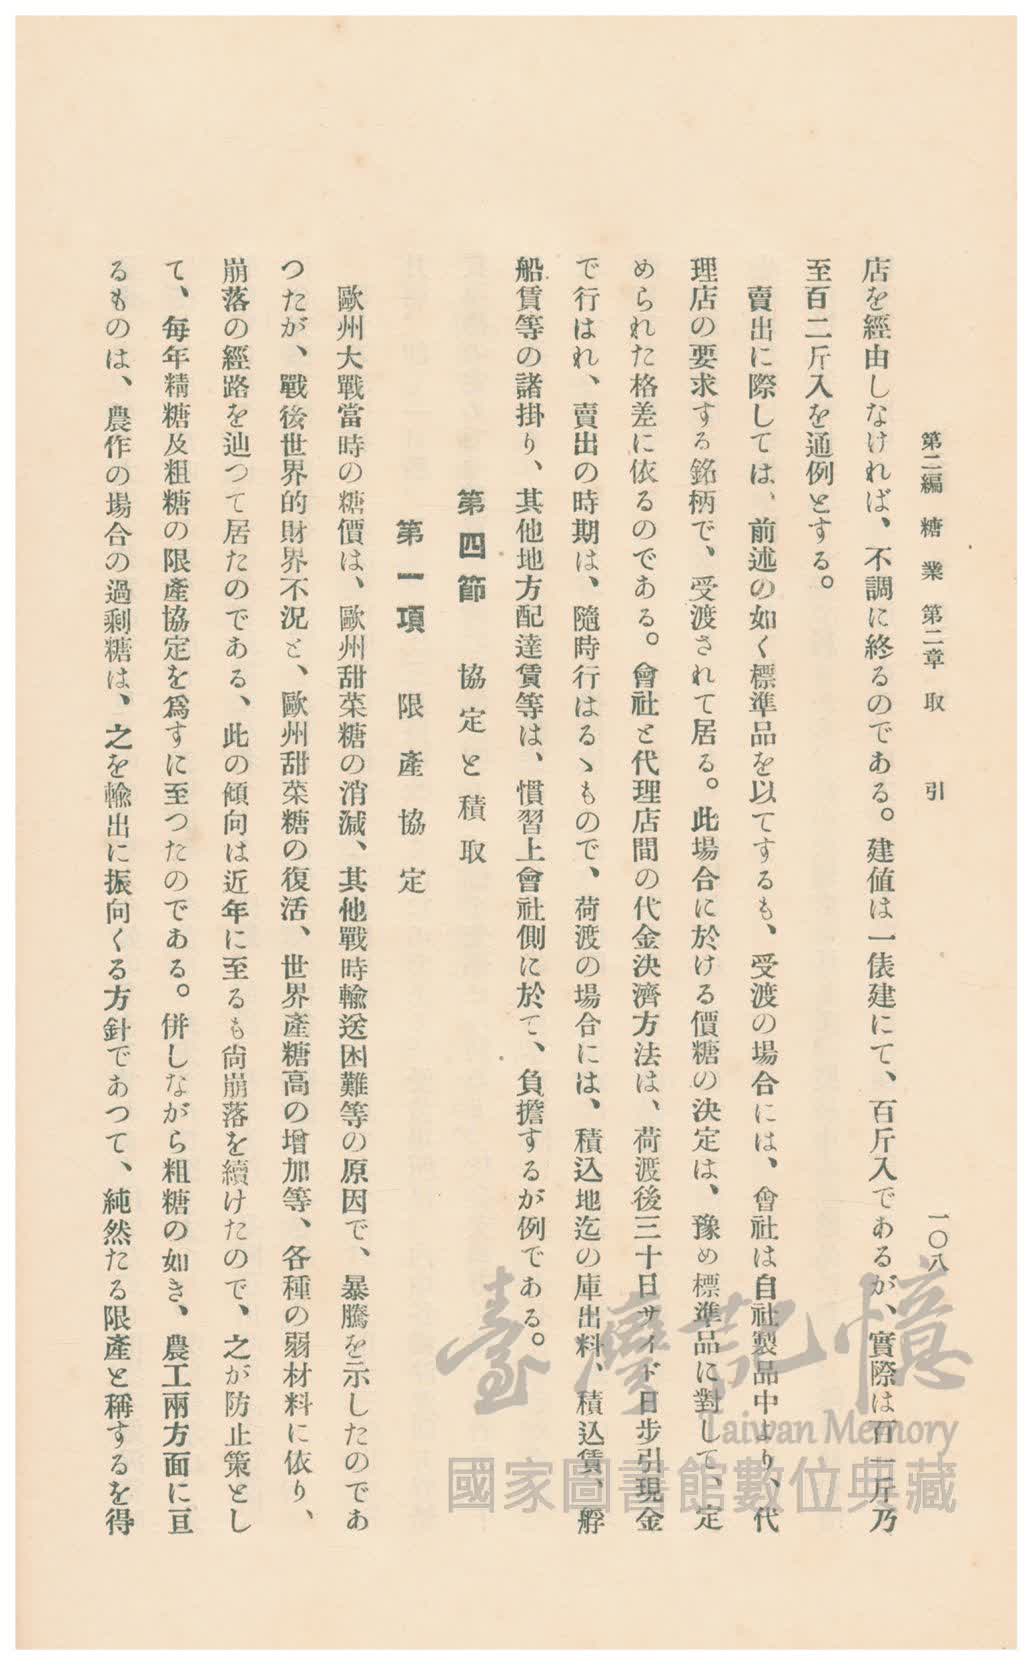 第二編　糖業　第二章　取引
一〇八
店を經由しなければ、不調に終るのである。建値は一俵建にて、百斤入であるが、實際は百一斤乃
至百二斤入を通例とする。
賣出に際しては、前述の如く標準品を以てするも、受渡の場合には、會社は自社製品中より、代
理店の要求する銘柄で、受渡されて居る。此場合に於ける價糖の決定は、豫め標準品に對して、定
められた格差に依るのである。會社と代理店間の代金決濟方法は、荷渡後三十日サイド日步引現金
で行はれ、賣出の時期は、隨時行はるゝもので、荷渡の場合には、積込地迄の庫出料、積込賃、艀
船賃等の諸掛り、其他地方配達賃等は、慣習上會社側に於て、負擔するが例である。
第四節　協定と積取
第一項　限產協定
歐州大戰當時の糖價は、歐州甜菜糖の消減、其他戰時輸送困難等の原因で、暴騰を示したのであ
つたが、戰後世界的財界不況と、歐州甜菜糖の復活、世界產糖高の增加等、各種の弱材料に依り、
崩落の經路を辿つて居たのである、此の傾向は近年に至るも尙崩落を續けたので、之が防止策とし
て、每年精糖及粗糖の限產協定を爲すに至つたのである。併しながら粗糖の如き、農工兩方面に亘
るものは、農作の場合の過剩糖は、之を輸出に振向くる方針であつて、純然たる限產と稱するを得
臺灣記憶
Taiwan Memory
國家圖書館數位典藏